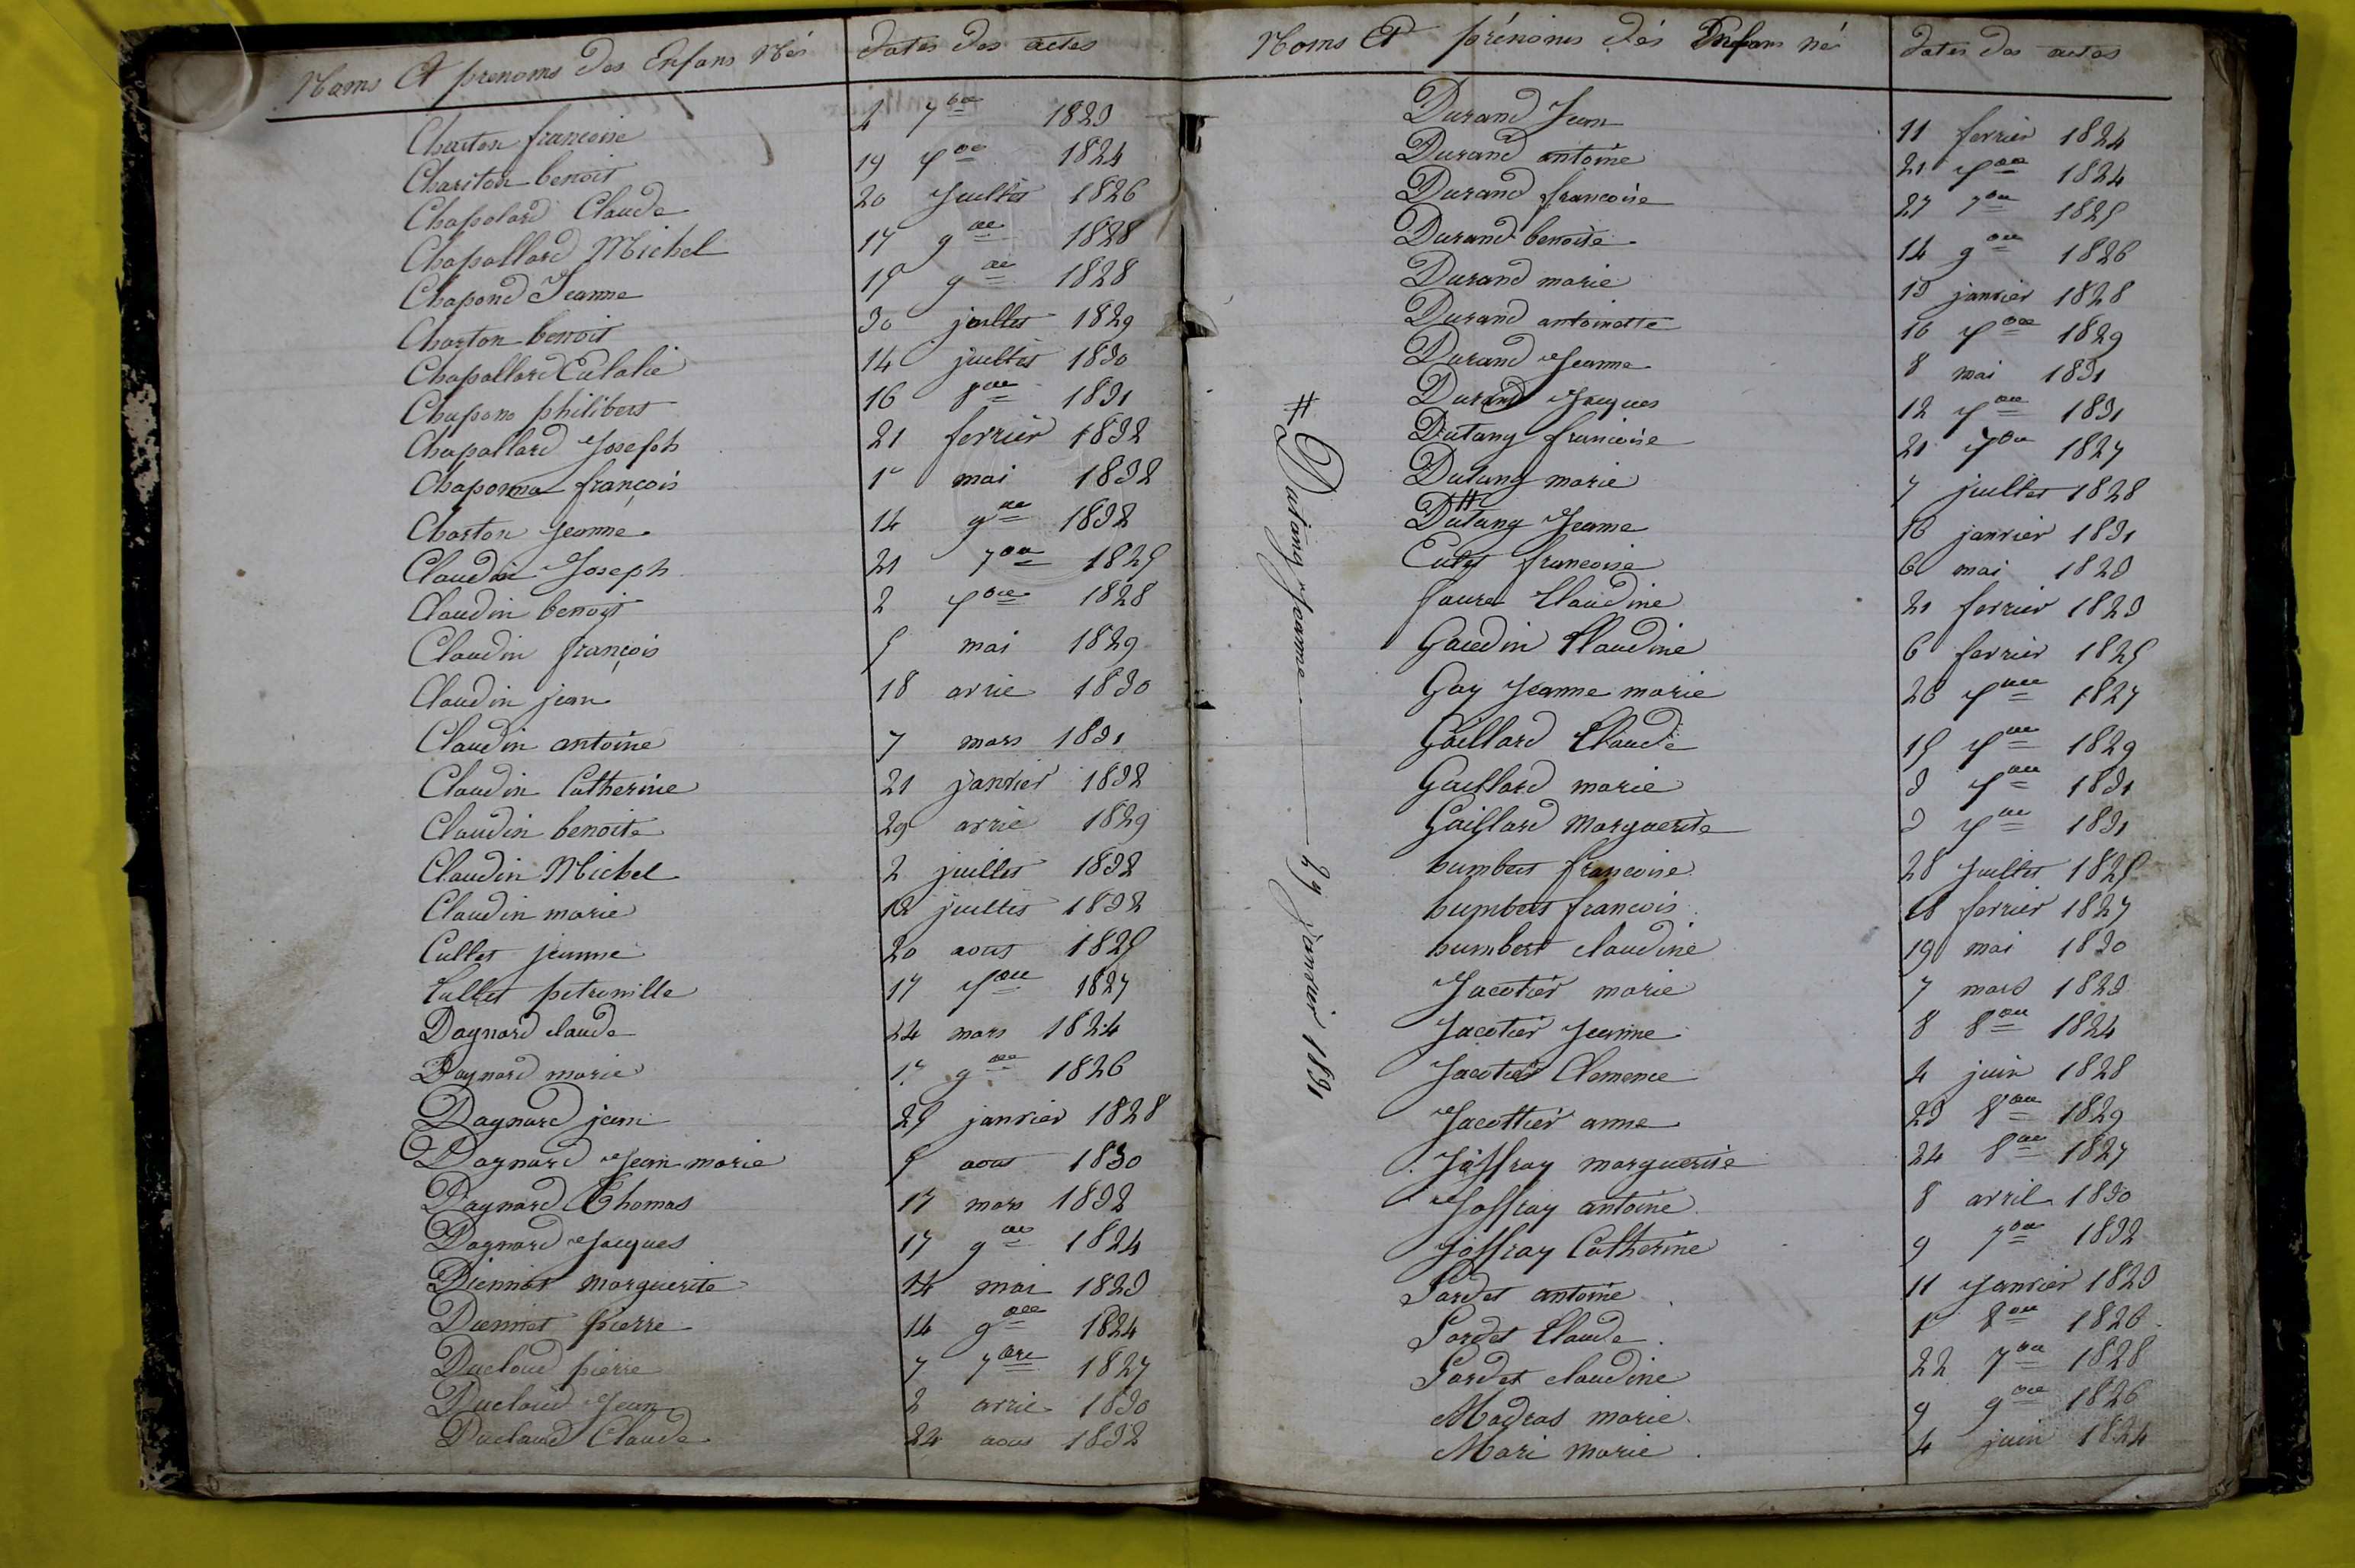 Noms Et prenoms des Enfans Nés dates des actes
Charton francoise 4 7bre 1823
Chariton benoit 19 Xbre 1824
Chapolard Claude 20 Juillet 1826
Chapollard Michel 17 9bre 1828
Chapond Jeanne 15 9bre 1828
Charton benoit 30 juillet 1829
Chapollard Eulalie 14 juillet 1830
Chapono philibert 16 8bre 1831
Chapollard Joseph 21 fevrier 1832
Chaponna françois 1r mai 1832
Charton Jeanne 14 9bre 1832
Claudin Joseph 21 7bre 1825
Claudin benoit 2 Xbre 1828
Claudin françois 5 mai 1829
Claudin jean 18 avril 1830
Claudin antoine 7 mars 1831
Claudin Catherine 21 janvier 1832
Claudin benoite 29 avril 1829
Claudin Michel 2 juillet 1832
Claudin marie 12 juillet 1832
Cullet jeanne 20 aout 1825
Cullet petronille 17 Xbre 1827
Dagnard claude 24 mars 1824
Dagnard marie 1r 9bre 1826
Dagnard jean 25 janvier 1828
Dagnard Jean marie 5 aout 1830
Dagnard Thomas 17 mars 1832
Dagnard Jacques 17 9bre 1824
Diennet marguerite 14 mai 1823
Diennet pierre 14 9bre 1824
Ducloud pierre 7 7bre 1827
Ducloud Jean 2 avril 1830
Duclaud Claude 24 aout 1832
Noms Et prénoms dés Enfans né dates des actes
Durand Jean 11 fevrier 1824
Durand antoine 21 Xbre 1824
Durand francoise 27 7bre 1825
Durand benoite 14 9bre 1826
Durand marie 13 janvier 1828
Durand antoinette 16 Xbre 1829
Durand Jeanne 8 mai 1831
Durand Jacques 12 Xbre 1831
Dutang francoise 21 Xbre 1827
Dutang marie 7 juillet 1828
# Dutang Jeanne 16 janvier 1831
francoise 6 mai 1823
faure Claudine 21 fevrier 1823
Gaudin Claudine 6 fevrier 1825
Gay Jeanne marie 26 Xbre 1827
Gaillard Claude 15 Xbre 1829
Gaillard marie 3 Xbre 1831
Gaillard Marguerite 3 Xbre 1831
humbert francoise 28 Juillet 1825
humbert francois 18 fevrier 1827
humbert claudine 19 mai 1830
Jacotier marie 7 mars 1823
Jacotier Jeanne 8 8bre 1824
Jacotier Clemence 4 juin 1828
Jacottier anne 23 8bre 1829
Joffray marguerite 24 8bre 1827
Joffray antoine 8 avril 1830
Joffray Catherine 9 7bre 1832
Lardet antoine 11 Janvier 1823
Lardet Claude 1r 8bre 1826
Lardet claudine 22 7bre 1828
Madras marie 9 9bre 1826
Mari Marie 4 juin 1824
# Dutang Jeanne 27 Janvier 1831